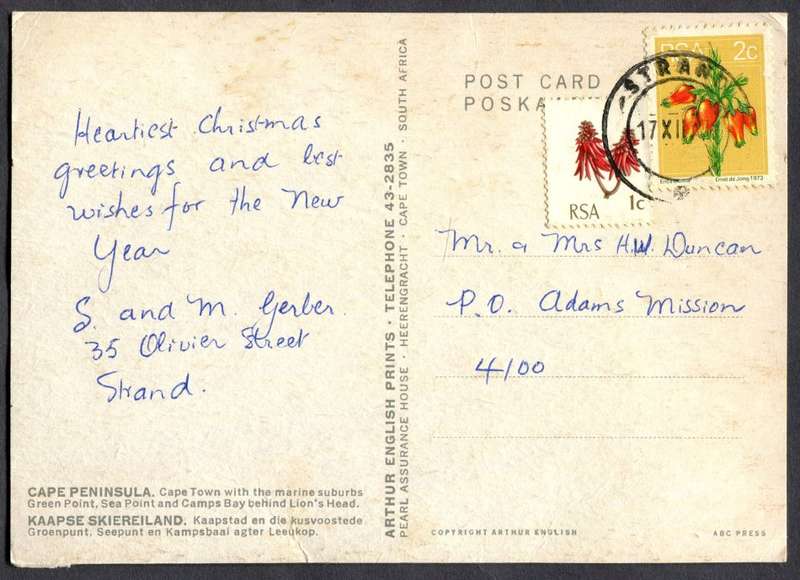 Heartiest Christmas
greetings and best
wishes for the New
Year
S. and M. Gerber.
35 Olivier Street
Strand.
CAPE PENINSULA. Cape Town with the marine suburbs
Green Point, Sea Point and Camps Bay behind Lion's Head.
KAAPSE SKIEREILAND. Kaapstad en die kusvoostede
Groenpunt, Seepunt en Kampsbaai agter Leeukop.
ARTHUR ENGLISH PRINTS · TELEPHONE 43-2835
PEARL ASSURANCE HOUSE · HEERENGRACHT · CAPE TOWN · SOUTH AFRICA
POST CARD
POSKA
STRAN
17 XII
RSA 2c
1973
RSA 1c
Mr. a Mrs H.W. Duncan
P.O. Adams Mission
4100
COPYRIGHT ARTHUR ENGLISH
ABC PRESS